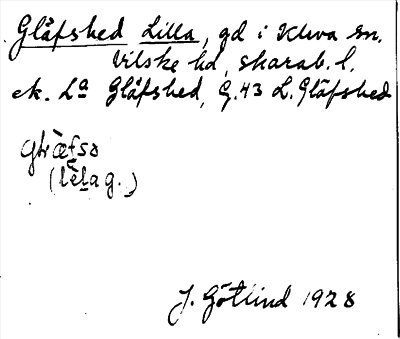 Glåfshed Lilla, gd i Kleva sn.
Vilske hd, skarab. l.
ek. La Glåfshed, G.43 L. Glåfshed
(lèla g.)
J. Götlind 1928